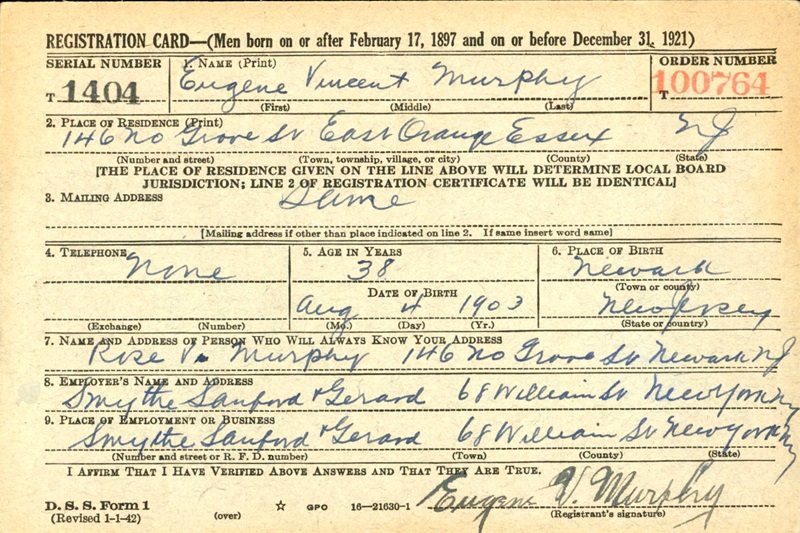 REGISTRATION CARD—(Men born on or after February 17, 1897 and on or before December 31, 1921)
SERIAL NUMBER 1. NAME (Print) ORDER NUMBER
T 1404 Eugene Vincent Murphy T 100764
(First) (Middle) (Last)
2. PLACE OF RESIDENCE (Print)
146 No Grove St East Orange Essex NJ
(Number and street) (Town, township, village, or city) (County) (State)
[THE PLACE OF RESIDENCE GIVEN ON THE LINE ABOVE WILL DETERMINE LOCAL BOARD
JURISDICTION; LINE 2 OF REGISTRATION CERTIFICATE WILL BE IDENTICAL]
3. MAILING ADDRESS
Same
[Mailing address if other than place indicated on line 2. If same insert word same]
4. TELEPHONE 5. AGE IN YEARS 6. PLACE OF BIRTH
None 38 Newark
DATE OF BIRTH (Town or county)
Aug 4 1903 New Jersey
(Exchange) (Number) (Mo.) (Day) (Yr.) (State or country)
7. NAME AND ADDRESS OF PERSON WHO WILL ALWAYS KNOW YOUR ADDRESS
Rose V. Murphy 146 No Grove St Newark NJ
8. EMPLOYER'S NAME AND ADDRESS
Smythe Sanford + Gerard 68 William St New York NY
9. PLACE OF EMPLOYMENT OR BUSINESS
Smythe Sanford + Gerard 68 William St New York NY
(Number and street or R. F. D. number) (Town) (County) (State)
I AFFIRM THAT I HAVE VERIFIED ABOVE ANSWERS AND THAT THEY ARE TRUE.
Eugene V. Murphy
D. S. S. Form 1 ☆ GPO 16—21630-1
(Revised 1-1-42) (over) (Registrant's signature)